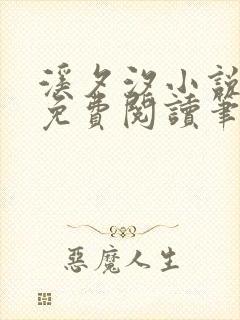 溪夕汐小說
免費閱讀筆
惡魔人生